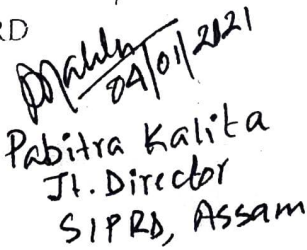 RD
04/01/2021
Pabitra Kalita
Jt. Director
SIPRD, Assam